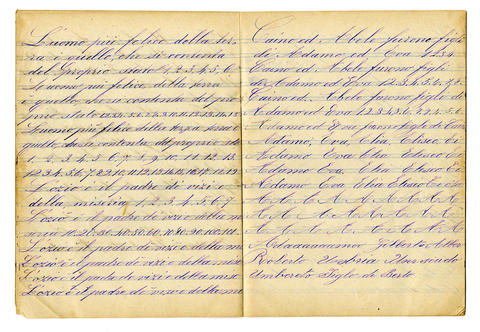 L'uomo più felice della ter-
ra è quello, che si contenta
del proprio stato 1, 2, 3, 4, 5, 6
L'uomo più felice della terra
è quello, che si contenta del pro
prio stato
L'uomo più felice della terra è
quello, che si contenta del proprio
1, 2, 3, 4, 5, 6, 7, 8, 9, 10, 11, 12, 13,
L'ozio è il padre di vizi e
della miseria 1, 2, 3, 4, 5, 6, 7
L'ozio è il padre di vizi e della
seria 10. 20. 30. 40. 50. 60. 70. 80. 90. 100.
L'ozio è il padre di vizi e della mi
L'ozio è il padre di vizi e della mis
L'ozio è il padre di vizi e della mis
L'ozio è il padre di vizi e della mi
Caino ed Abele furono figli
di Adamo ed Eva 1 2 3 4
Caino ed Abele furono figli
di Adamo ed Eva 1. 2. 3. 4. 5. 6. 7.
Caino ed Abele furono figli di
Adamo ed Eva 1. 2. 3. 4. 5. 6.
Adamo ed Eva furon figli
Adamo, Eva, Elia, Eliseo
Adamo Eva Elia Eliseo
Adamo Eva, Elia, Eliseo
Adamo Eva Elia Eliseo
A A A A A A A A
A A A A A A A A
A A A A A A A A
Gilberto
Roberto
Umberto figlo de Berto